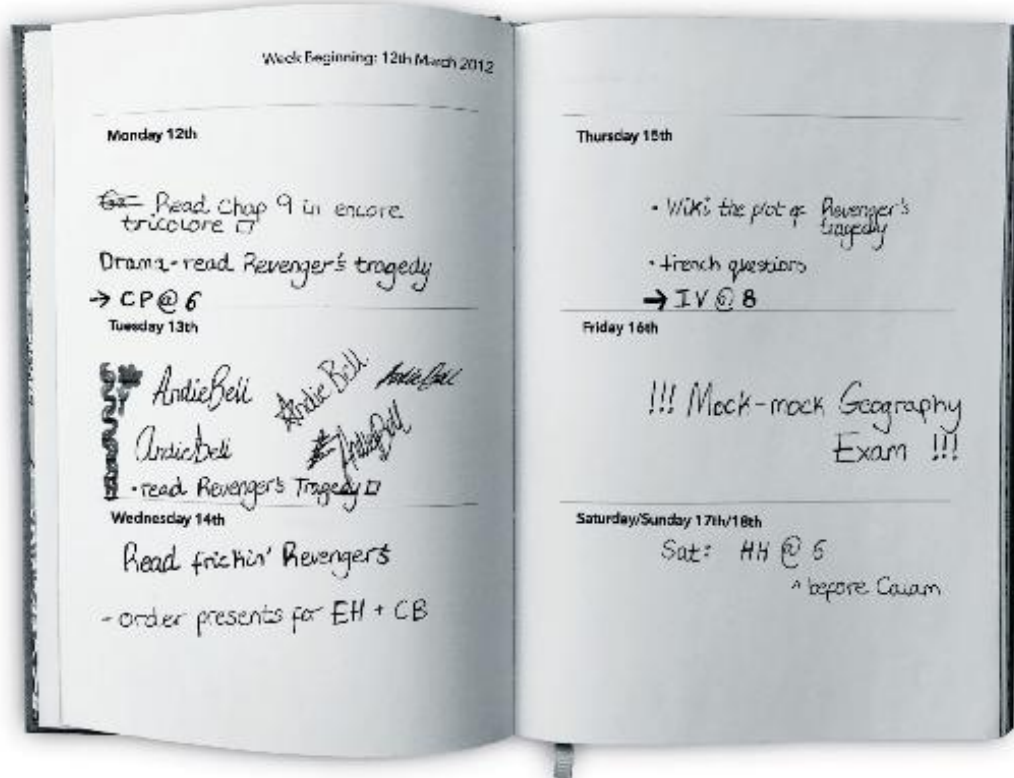 Week Beginning: 12th March 2012
Monday 12th
Read Chap 9 in encore
tricolore
Drama-read Revenger's tragedy
→ CP @ 6
Tuesday 13th
Andie Bell Andie Bell Andie Bell
Andie Bell Andie Bell
• read Revenger's Tragedy
Wednesday 14th
Read frickin' Revengers
- order presents for EH + CB
Thursday 15th
• Wiki the plot of Revenger's
tragedy
• french questions
→ IV @ 8
Friday 16th
!!! Mock-mock Geography
Exam !!!
Saturday/Sunday 17th/18th
Sat: HH @ 6
^ before Calam